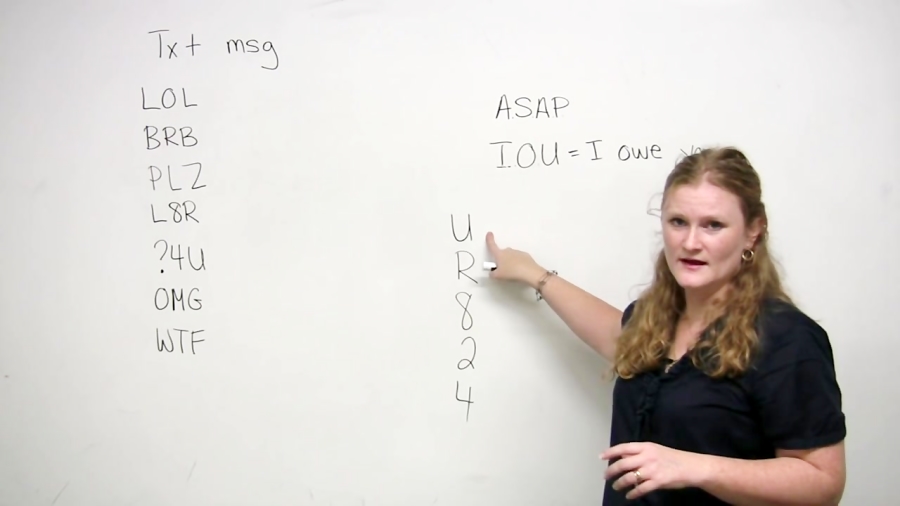 Txt msg
LOL
BRB
PLZ
L8R
?4U
OMG
WTF
ASAP
IOU = I owe
U
R
8
2
4